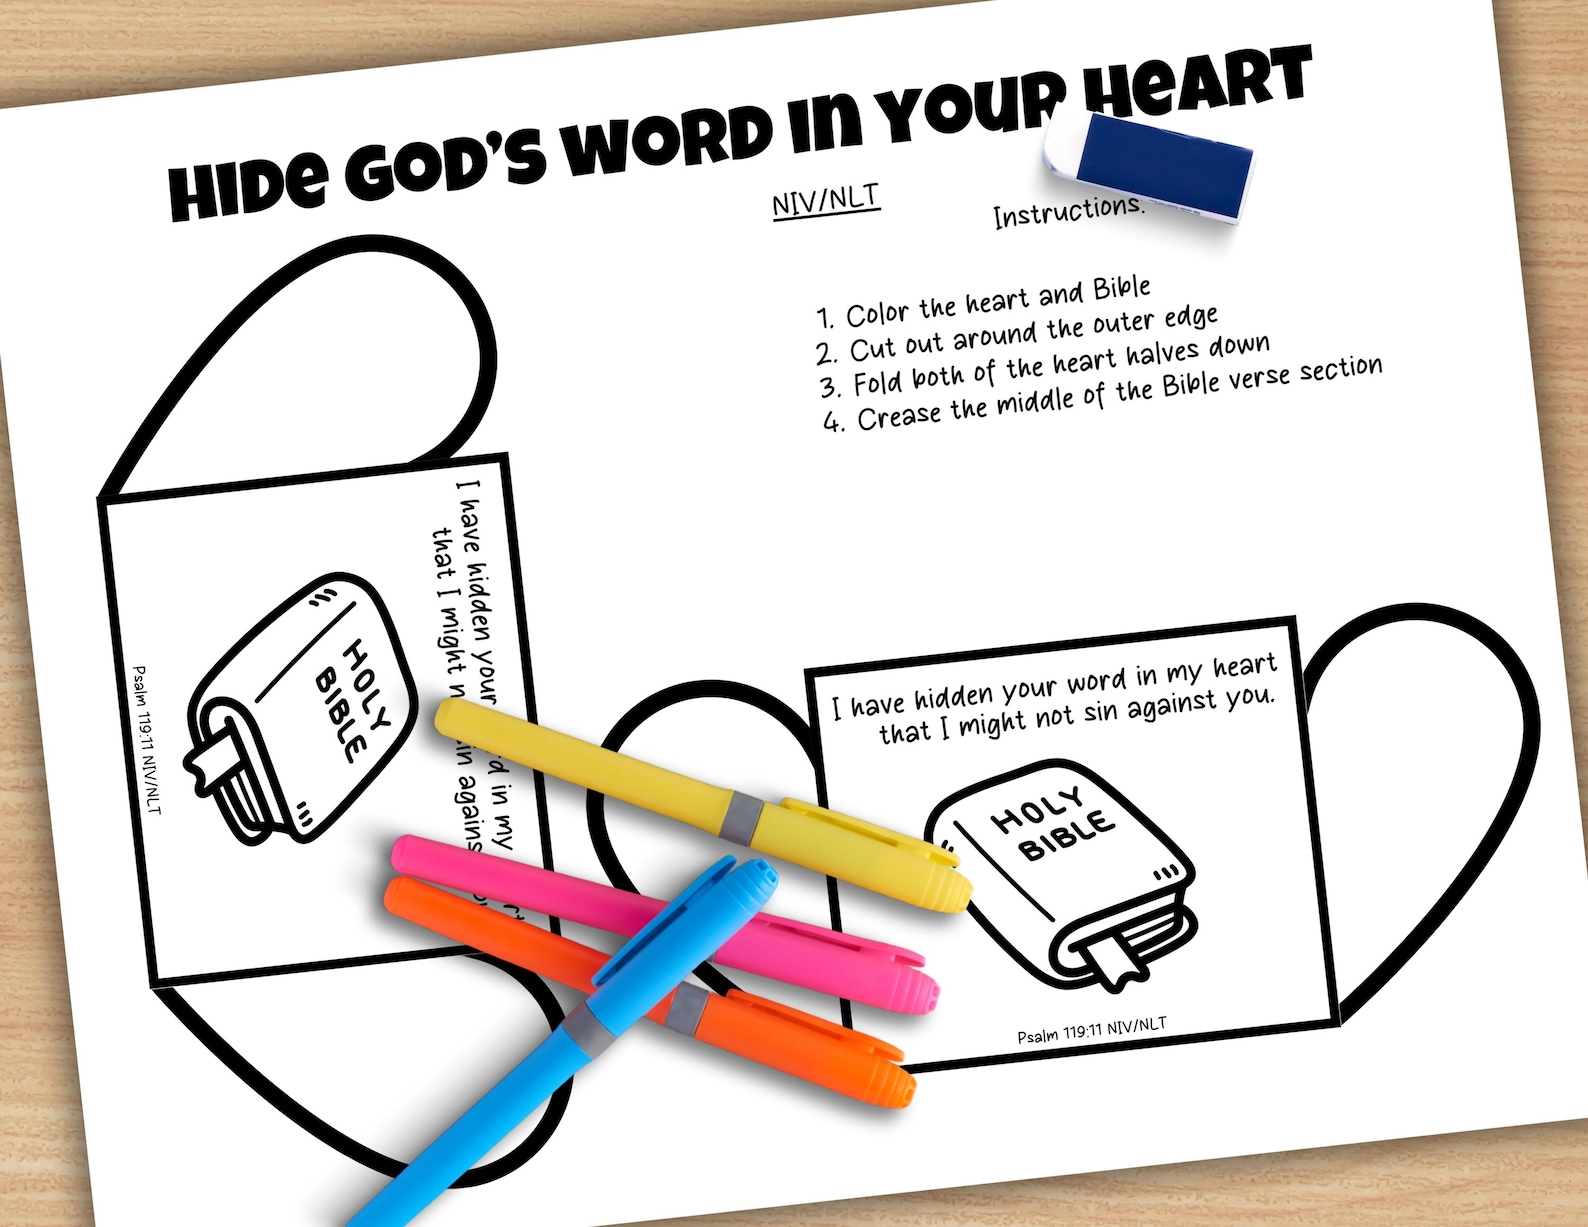 HIDe GOD'S WORD In YOUR HeART
NIV/NLT
Instructions:
1. Color the heart and Bible
2. Cut out around the outer edge
3. Fold both of the heart halves down
4. Crease the middle of the Bible verse section
I have hidden your in my
that I might against
HOLY
BIBLE
Psalm 119:11 NIV/NLT
I have hidden your word in my heart
that I might not sin against you.
HOLY
BIBLE
Psalm 119:11 NIV/NLT